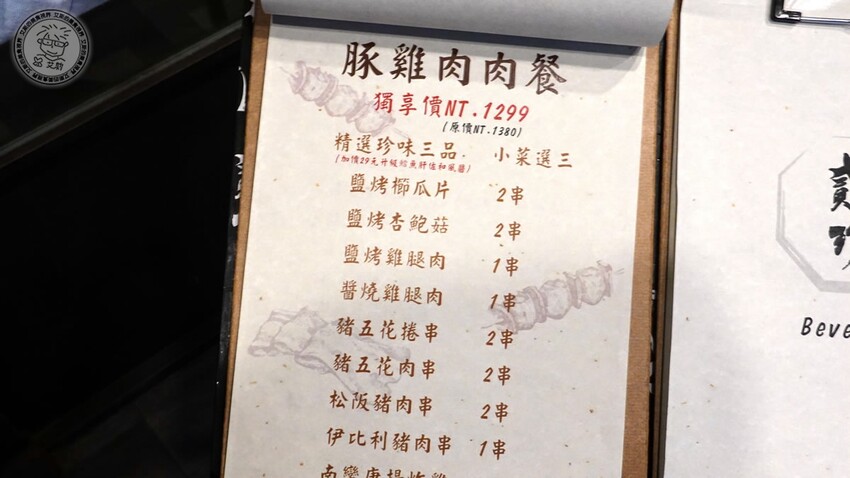 豚雞肉肉餐
獨享價NT.1299
(原價NT.1380)
精選珍味三品. 小菜選三
(加價29元升級鮟魚肝佐和風醬)
鹽烤櫛瓜片 2串
鹽烤杏鮑菇 2串
鹽烤雞腿肉 1串
醬燒雞腿肉 1串
豬五花捲串 2串
豬五花肉串 2串
松阪豬肉串 2串
伊比利豬肉串 1串
Beve